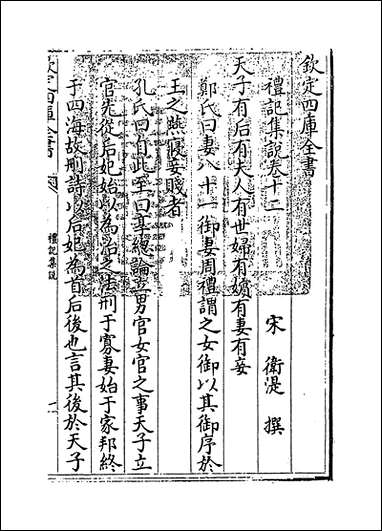 欽定四庫全書
禮記集說卷十二
宋 衛湜 撰
天子有后有夫人有世婦有嬪有妻有妾
鄭氏曰妻八十一御妻周禮謂之女御以其御序於
王之燕寢妾賤者
孔氏曰自此至曰辜總論立男官女官之事天子立
官先從后妃始以為治之法刑于寡妻始于家邦終
于四海故刪詩以后妃為首后後也言其後於天子
欽定四庫全書
禮記集說
一